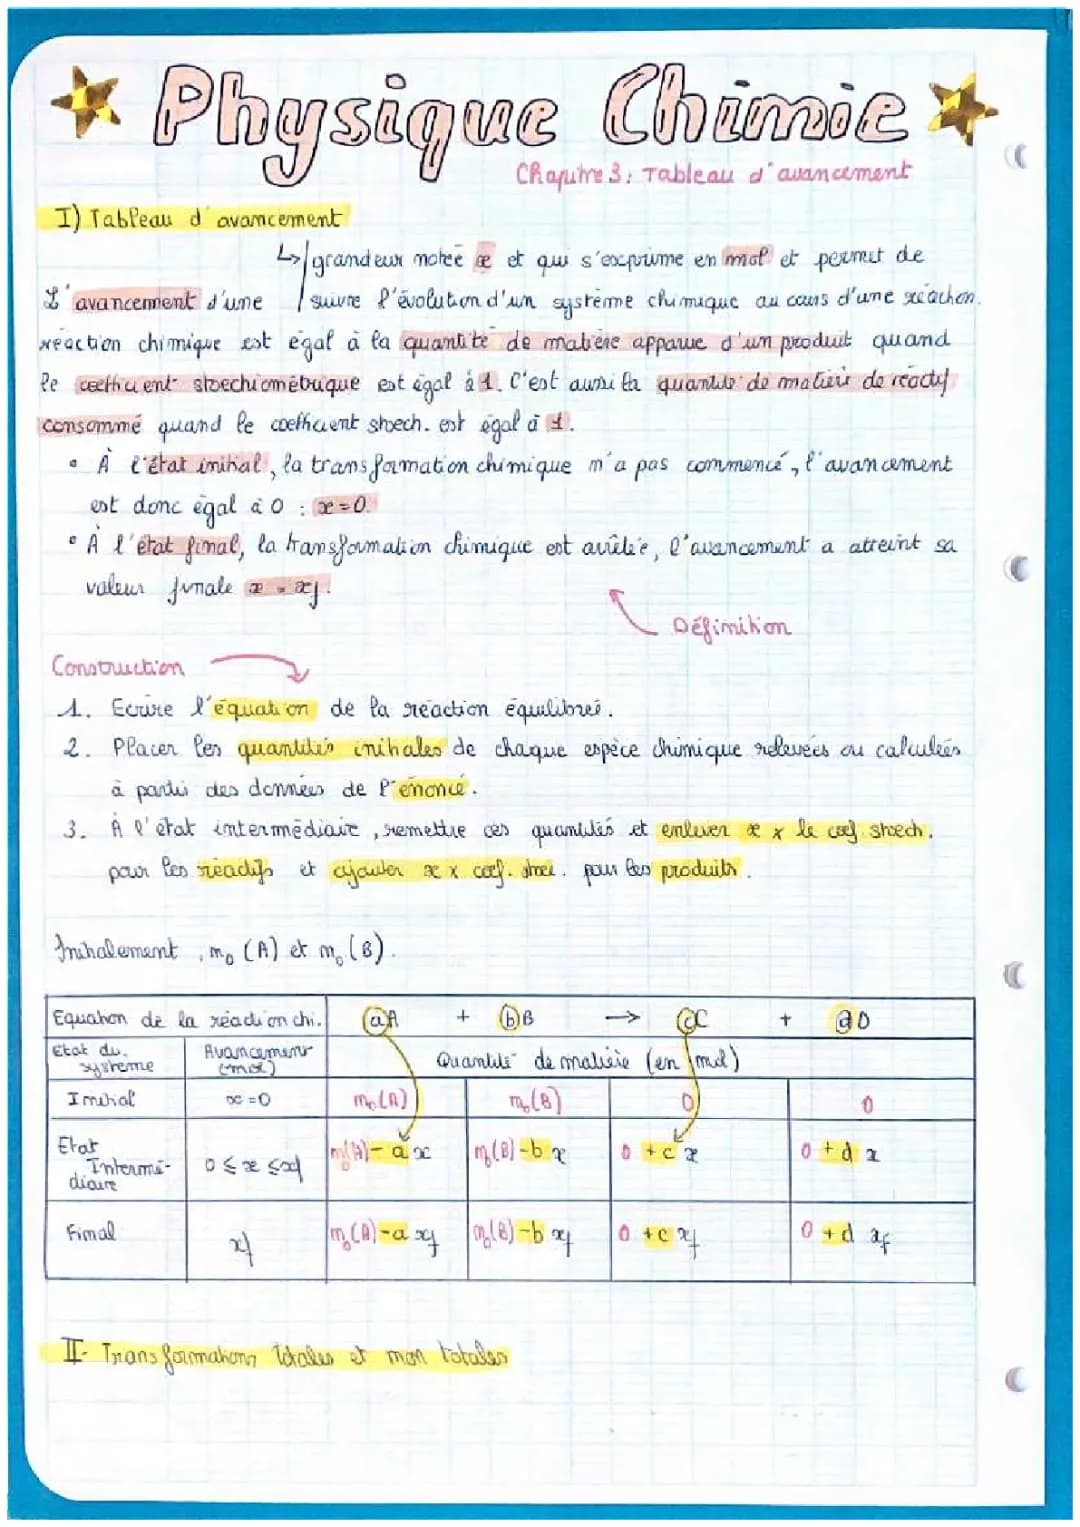 Physique Chimie
Chapitre 3 : Tableau d'avancement
I) Tableau d'avancement
↳ grandeur notée x et qui s'exprime en mol et permet de
suivre l'évolution d'un système chimique au cours d'une réaction.
L'avancement d'une
réaction chimique est égal à la quantité de matière apparue d'un produit quand
le coefficient stoechiométrique est égal à 1. C'est aussi la quantité de matière de réactif
consommé quand le coefficient stoech. est égal à 1.
• À l'état initial, la transformation chimique n'a pas commencé, l'avancement
est donc égal à 0 : x = 0.
• À l'état final, la transformation chimique est arrêtée, l'avancement a atteint sa
valeur finale x = xf.
Définition
Construction
1. Ecrire l'équation de la réaction équilibrée.
2. Placer les quantités initiales de chaque espèce chimique relevées ou calculées
à partir des données de l'énoncé.
3. À l'état intermédiaire, remettre ces quantités et enlever x x le coef. stoech.
pour les réactifs et ajouter x x coef. stoe. pour les produits.
Initialement, n₀ (A) et n₀ (B).
Equation de la réaction chi. aA + bB → cC + dD
Etat du système Avancement (mol) Quantité de matière (en mol)
Initial x = 0 n₀(A) n₀(B) 0 0
Etat Intermédiaire 0 ≤ x ≤ xf n₀(A) - a x n₀(B) - b x 0 + c x 0 + d x
Final xf n₀(A) - a xf n₀(B) - b xf 0 + c xf 0 + d xf
II- Transformations totales et non totales